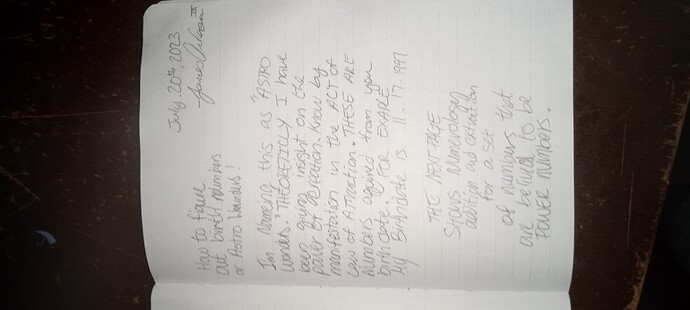 July. 20th, 2023
James
IV
How to figure
out birth numbers
or Astro wonders!
I'm Naming this as "ASTRO
wonders." THEORETICLLY I have
been given insight on the
power of creation. Know by
manifestation in the ACT of
Law of Attraction. THESE ARE
Numbers aquired from you
birth date. FOR EXAPLE
My Birthdate is 11.17.1997
THE NEXT PAGE
SHOWS Numerology
addition and
for a set
of numbers that
are belived to be
Power numbers.